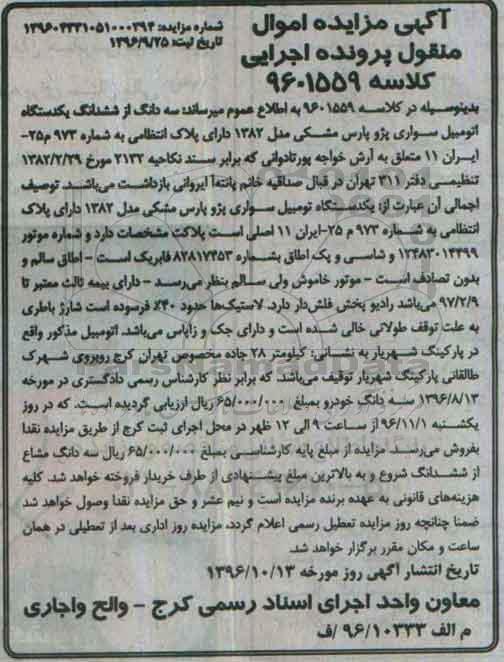 آگهی مزایده اموال
منقول پرونده اجرایی
کلاسه ۹۶۰۱۵۵۹
شماره مزایده: ۱۳۹۶۰۴۳۳۱۰۵۱۰۰۰۲۹۴
تاریخ ثبت: ۱۳۹۶/۹/۲۵
بدینوسیله در کلاسه ۹۶۰۱۵۵۹ به اطلاع عموم میرساند: سه دانگ از ششدانگ یکدستگاه
اتومبیل سواری پژو پارس مشکی مدل ۱۳۸۲ دارای پلاک انتظامی به شماره ۹۷۳ م۲۵-
ایران ۱۱ متعلق به آرش خواجه پورتادوانی که برابر سند نکاحیه ۲۱۳۲ مورخ ۱۳۸۲/۲/۲۹
تنظیمی دفتر ۳۱۱ تهران در قبال صداقیه خانم پانته‌آ ایروانی بازداشت می‌باشد. توصیف
اجمالی آن عبارت از: یکدستگاه تومبیل سواری پژو پارس مشکی مدل ۱۳۸۲ دارای پلاک
انتظامی به شماره ۹۷۳ م ۲۵-ایران ۱۱ اصلی است پلاکت مشخصات دارد و شماره موتور
۱۲۴۸۳۰۱۴۴۹۹ و شاسی و پک اطاق بشماره ۸۲۸۱۷۴۵۳ فابریک است - اطاق سالم و
بدون تصادف است - موتور خاموش ولی سالم بنظر می‌رسد - دارای بیمه ثالث معتبر تا
۹۷/۲/۹ می‌باشد رادیو پخش فلش‌دار دارد. لاستیک‌ها حدود ۴۰٪ فرسوده است شارژ باطری
به علت توقف طولانی خالی شده است و دارای جک و زاپاس می‌باشد. اتومبیل مذکور واقع
در پارکینگ شهریار به نشانی: کیلومتر ۲۸ جاده مخصوص تهران کرج روبروی شهرک
طالقانی پارکینگ شهریار توقیف می‌باشد. که برابر نظر کارشناس رسمی دادگستری در مورخه
۱۳۹۶/۸/۱۳ سه دانگ خودرو بمبلغ ۶۵/۰۰۰/۰۰۰ ریال ارزیابی گردیده است. که در روز
یکشنبه ۹۶/۱۱/۱ از ساعت ۹ الی ۱۲ ظهر در محل اجرای ثبت کرج از طریق مزایده نقدا
بفروش می‌رسد. مزایده از مبلغ پایه کارشناسی بمبلغ ۶۵/۰۰۰/۰۰۰ ریال سه دانگ مشاع
از ششدانگ شروع و به بالاترین مبلغ پیشنهادی از طرف خریدار فروخته خواهد شد. کلیه
هزینه‌های قانونی به عهده برنده مزایده است و نیم عشر و حق مزایده نقدا وصول خواهد شد
ضمنا چنانچه روز مزایده تعطیل رسمی اعلام گردد، مزایده روز اداری بعد از تعطیلی در همان
ساعت و مکان مقرر برگزار خواهد شد.
تاریخ انتشار آگهی روز مورخه ۱۳۹۶/۱۰/۱۳
معاون واحد اجرای اسناد رسمی کرج - والح واجاری
م الف ۹۶/۱۰۳۳۳/ف